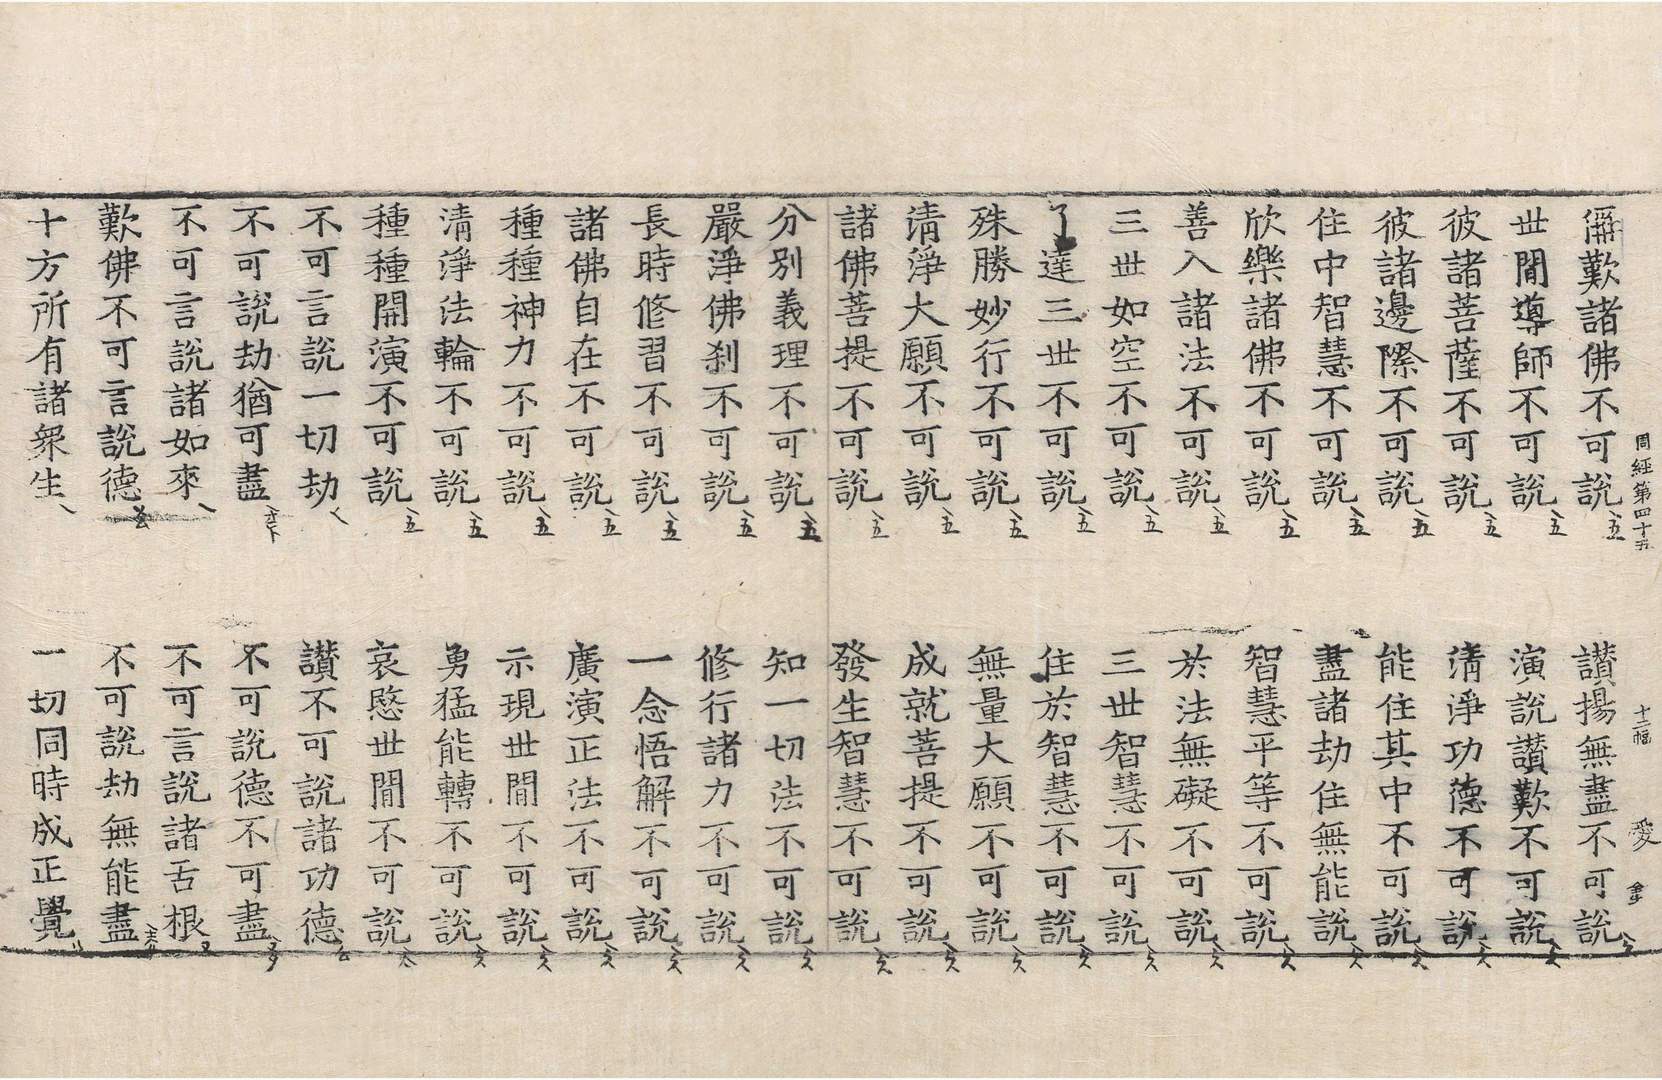 周經第四十五 十二幅 愛
偁歎諸佛不可說 讃揚無盡不可說
世間導師不可說 演說讃歎不可說
彼諸菩薩不可說 清淨功德不可說
彼諸邊際不可說 能住其中不可說
住中智慧不可說 盡諸劫住無能說
欣樂諸佛不可說 智慧平等不可說
善入諸法不可說 於法無礙不可說
三世如空不可說 三世智慧不可說
了達三世不可說 住於智慧不可說
殊勝妙行不可說 無量大願不可說
清淨大願不可說 成就菩提不可說
諸佛菩提不可說 發生智慧不可說
分別義理不可說 知一切法不可說
嚴淨佛刹不可說 修行諸力不可說
長時修習不可說 一念悟解不可說
諸佛自在不可說 廣演正法不可說
種種神力不可說 示現世間不可說
清淨法輪不可說 勇猛能轉不可說
種種開演不可說 哀愍世間不可說
不可言說一切劫 讃不可說諸功德
不可說劫猶可盡 不可說德不可盡
不可言說諸如來 不可言說諸舌根
歎佛不可言說德 不可說劫無能盡
十方所有諸衆生 一切同時成正覺